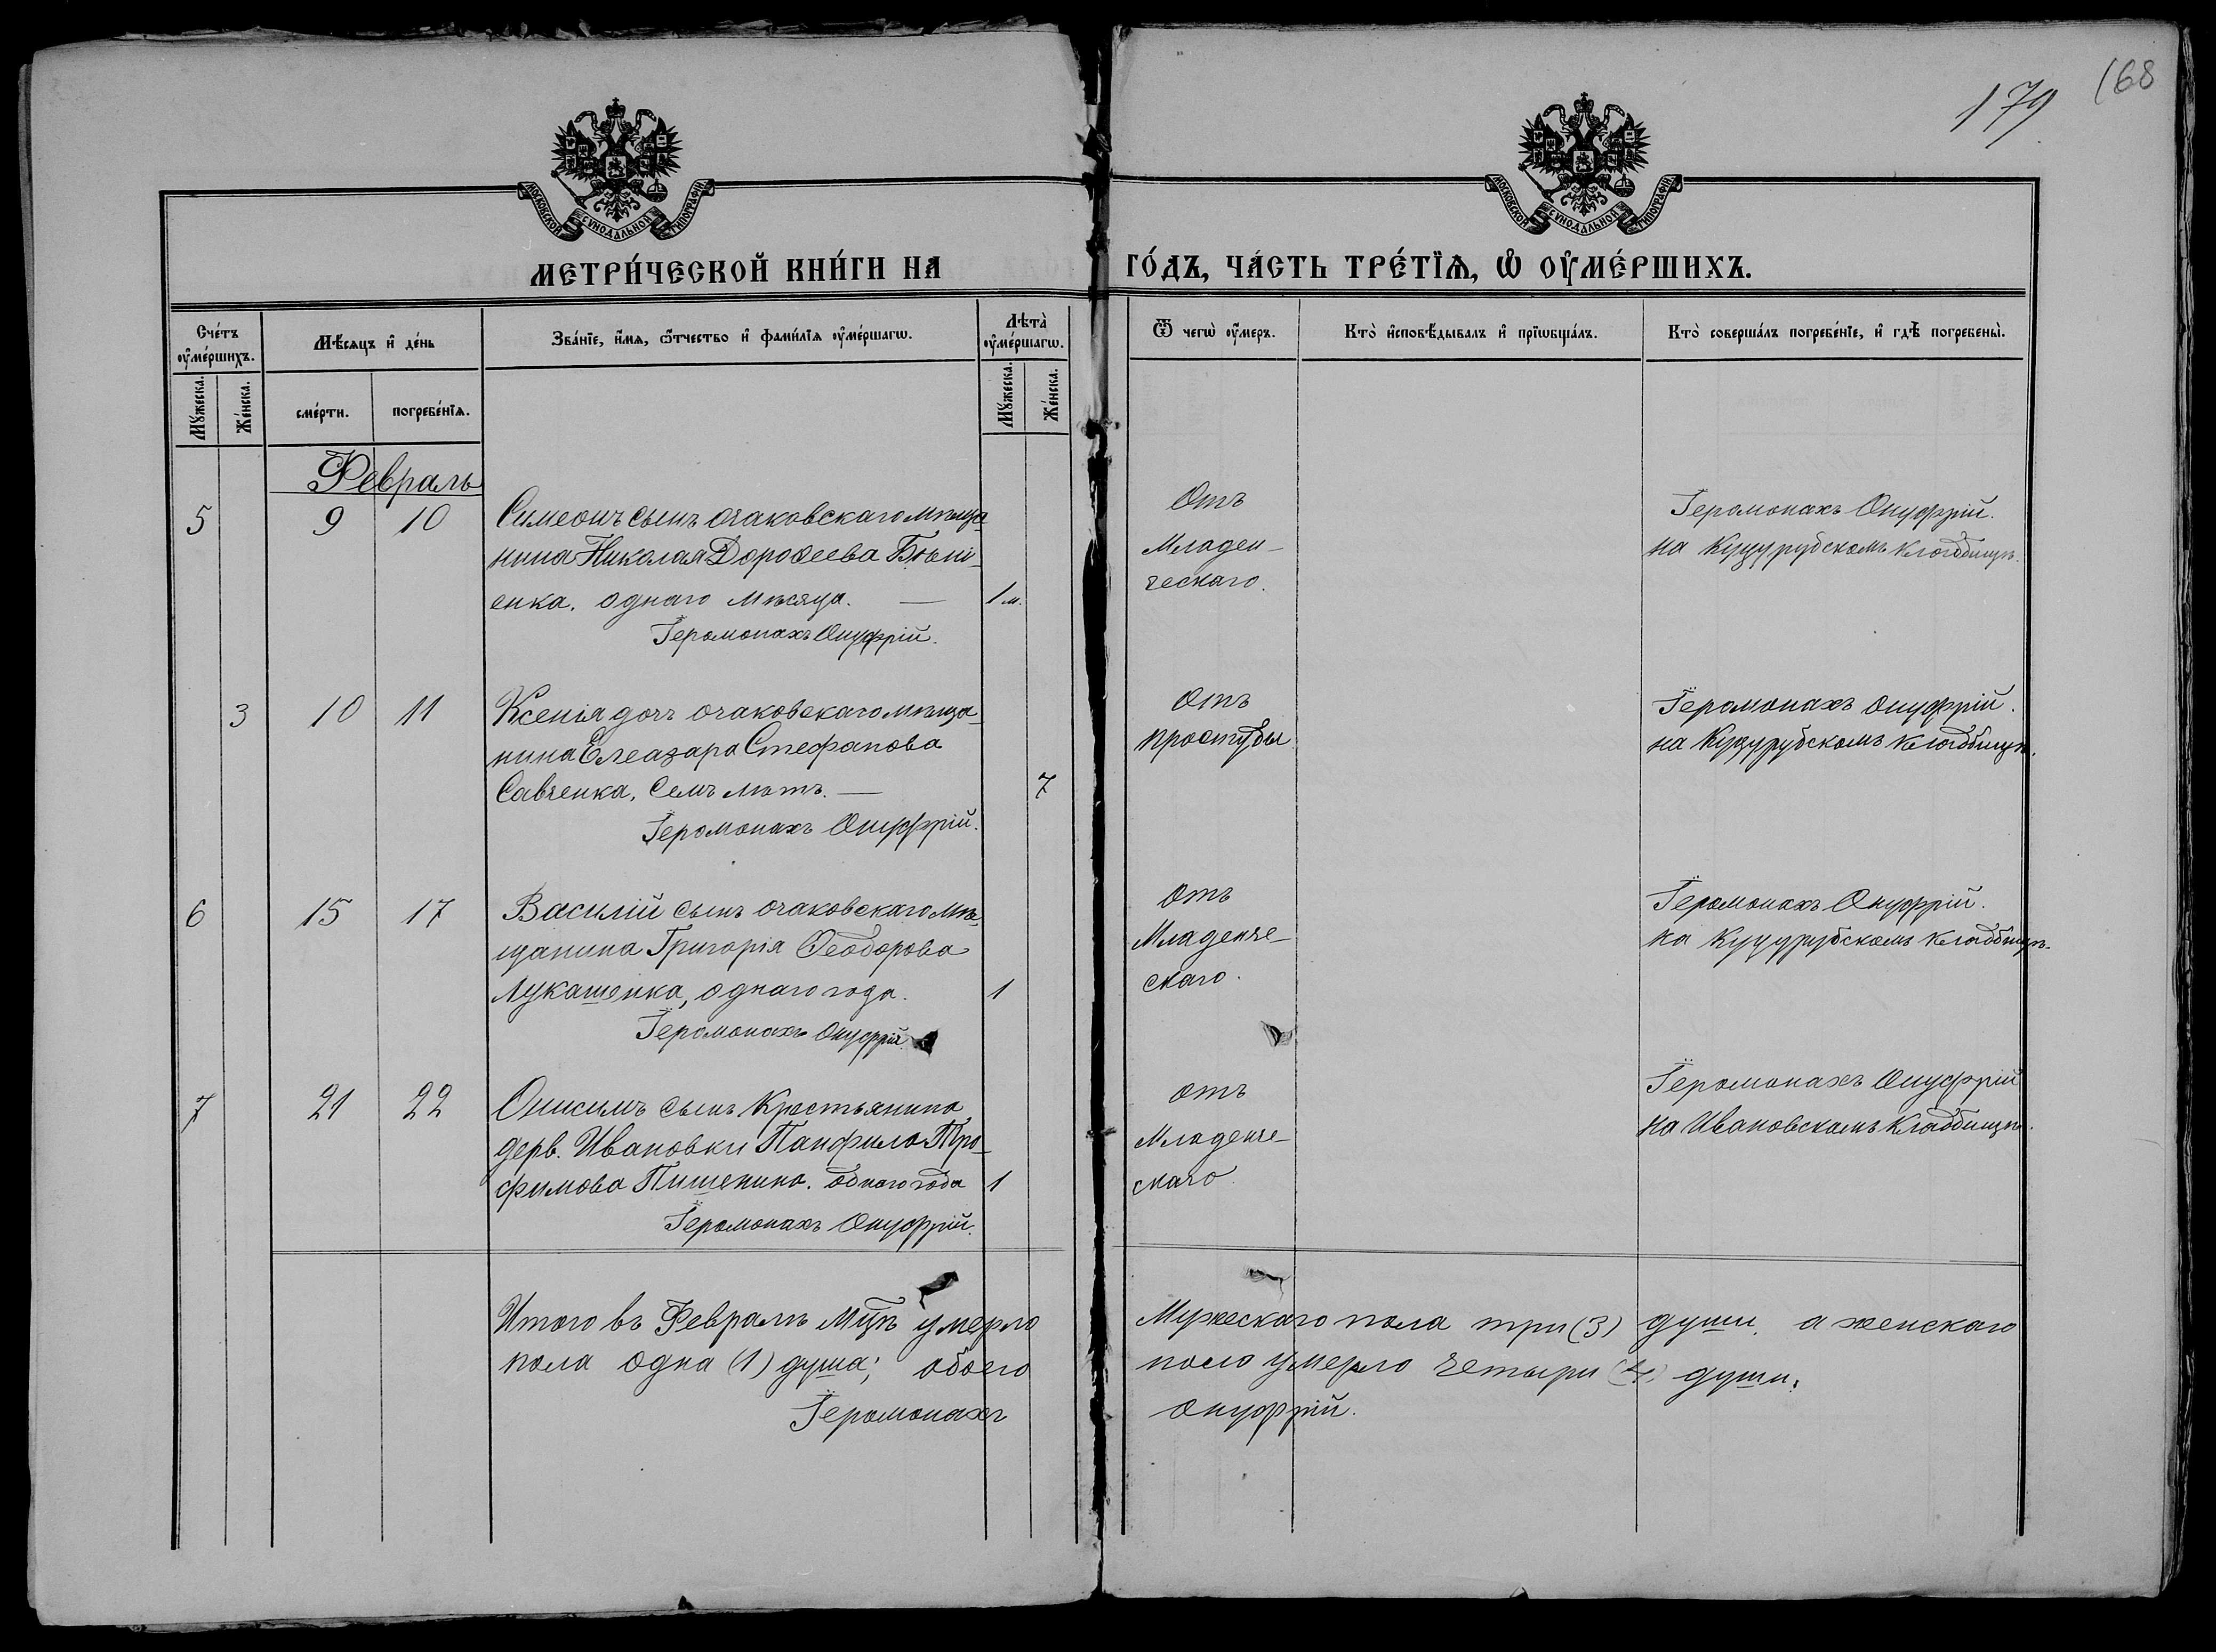 168
179
МОСКОВСКОЙ СѴНОДАЛЬНОЙ ТИПОГРАФІИ.
МОСКОВСКОЙ СѴНОДАЛЬНОЙ ТИПОГРАФІИ.
МЕТРИ́ЧЕСКОЙ КНИ́ГИ НА ГО́ДЪ, ЧА́СТЬ ТРЕ́ТЇѦ, Ѡ҆ ОУ҆МЕ́РШИХЪ.
Сче́тъ оу҆ме́ршихъ.
Мѣ́сѧцъ и҆ де́нь
Зва́нїе, и҆́мѧ, ѻ҆́тчество и҆ фами́лїѧ оу҆ме́ршагѡ.
Лѣта̀ оу҆ме́ршагѡ.
Ѿ чегѡ̀ оу҆́меръ.
Кто̀ и҆сповѣ́дывалъ и҆ прїѡбща́лъ.
Кто̀ соверша́лъ погребе́нїе, и҆ гдѣ̀ погребены̀.
Мꙋ́жеска.
Же́нска.
сме́рти.
погребе́нїѧ.
Мꙋ́жеска.
Же́нска.
Февраль
5 9 10 Симеонъ сынъ очаковскаго мѣща-
нина Николая Дороѳеева
енка. однаго мѣсяца. — 1 м.
Іеромонахъ Онуфрій.
Отъ
Младен-
ческаго.
Іеромонахъ Онуфрій.
на Куцурубскомъ кладбищѣ.
3 10 11 Ксенія дочъ очаковскаго мѣща-
нина Елеазара Стефанова
Савченка, Семъ лѣтъ. — 7
Іеромонахъ Онуфрій.
Отъ
простуды
Іеромонахъ Онуфрій.
на Куцурубскомъ кладбищѣ.
6 15 17 Василій сынъ очаковскаго мѣ-
щанина Григорія Ѳеодорова
Лукашенка, однаго года. 1
Іеромонахъ Онуфрій.
Отъ
Младенче-
скаго.
Іеромонахъ Онуфрій.
на Куцурубскомъ кладбищѣ.
7 21 22 Онисимъ сынъ Крестьянина
дерв. Ивановки Панфила Тро-
фимова Пишенина. одного года 1
Іеромонахъ Онуфрій.
отъ
Младенче-
скаго.
Іеромонахъ Онуфрій
на Ивановскомъ кладбищѣ.
Итого въ Февралѣ мцѣ умерло Мужескаго пола три (3) души, а женскаго
пола одна (1) душа; обоего пола умерло четыри (4) души.
Іеромонахъ Онуфрій.